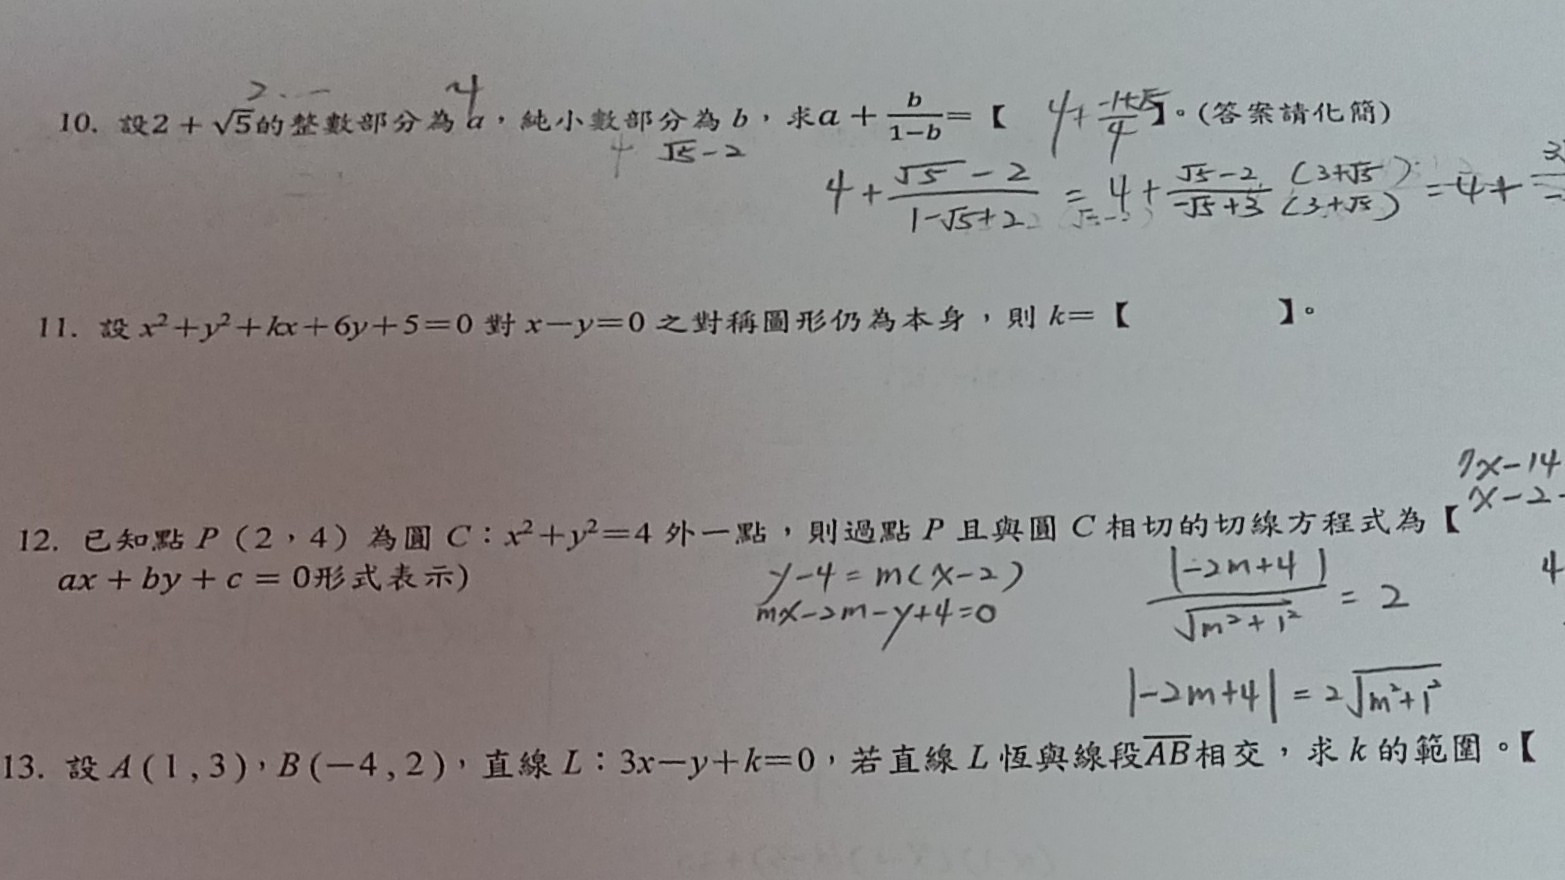 2. 4
10. 設2 + √5的整數部分為 a，純小數部分為 b，求a + b/(1−b) = 【 4 + (-1+√5)/4 】。(答案請化簡)
4 √5-2
4 + (√5-2)/(1-√5+2) = 4 + (√5-2)/(-√5+3) (3+√5)/(3+√5) = 4 +
11. 設 x²+y²+kx+6y+5=0 對 x−y=0 之對稱圖形仍為本身，則 k=【 】。
7x-14
x-2
12. 已知點 P（2，4）為圓 C：x²+y²=4 外一點，則過點 P 且與圓 C 相切的切線方程式為【
ax + by + c = 0形式表示)
y-4 = m(x-2) |-2m+4|/√(m²+1²) = 2 4
mx-2m-y+4=0
|-2m+4| = 2√(m²+1²)
13. 設 A(1,3)，B(−4,2)，直線 L：3x−y+k=0，若直線 L 恆與線段AB相交，求 k 的範圍。【